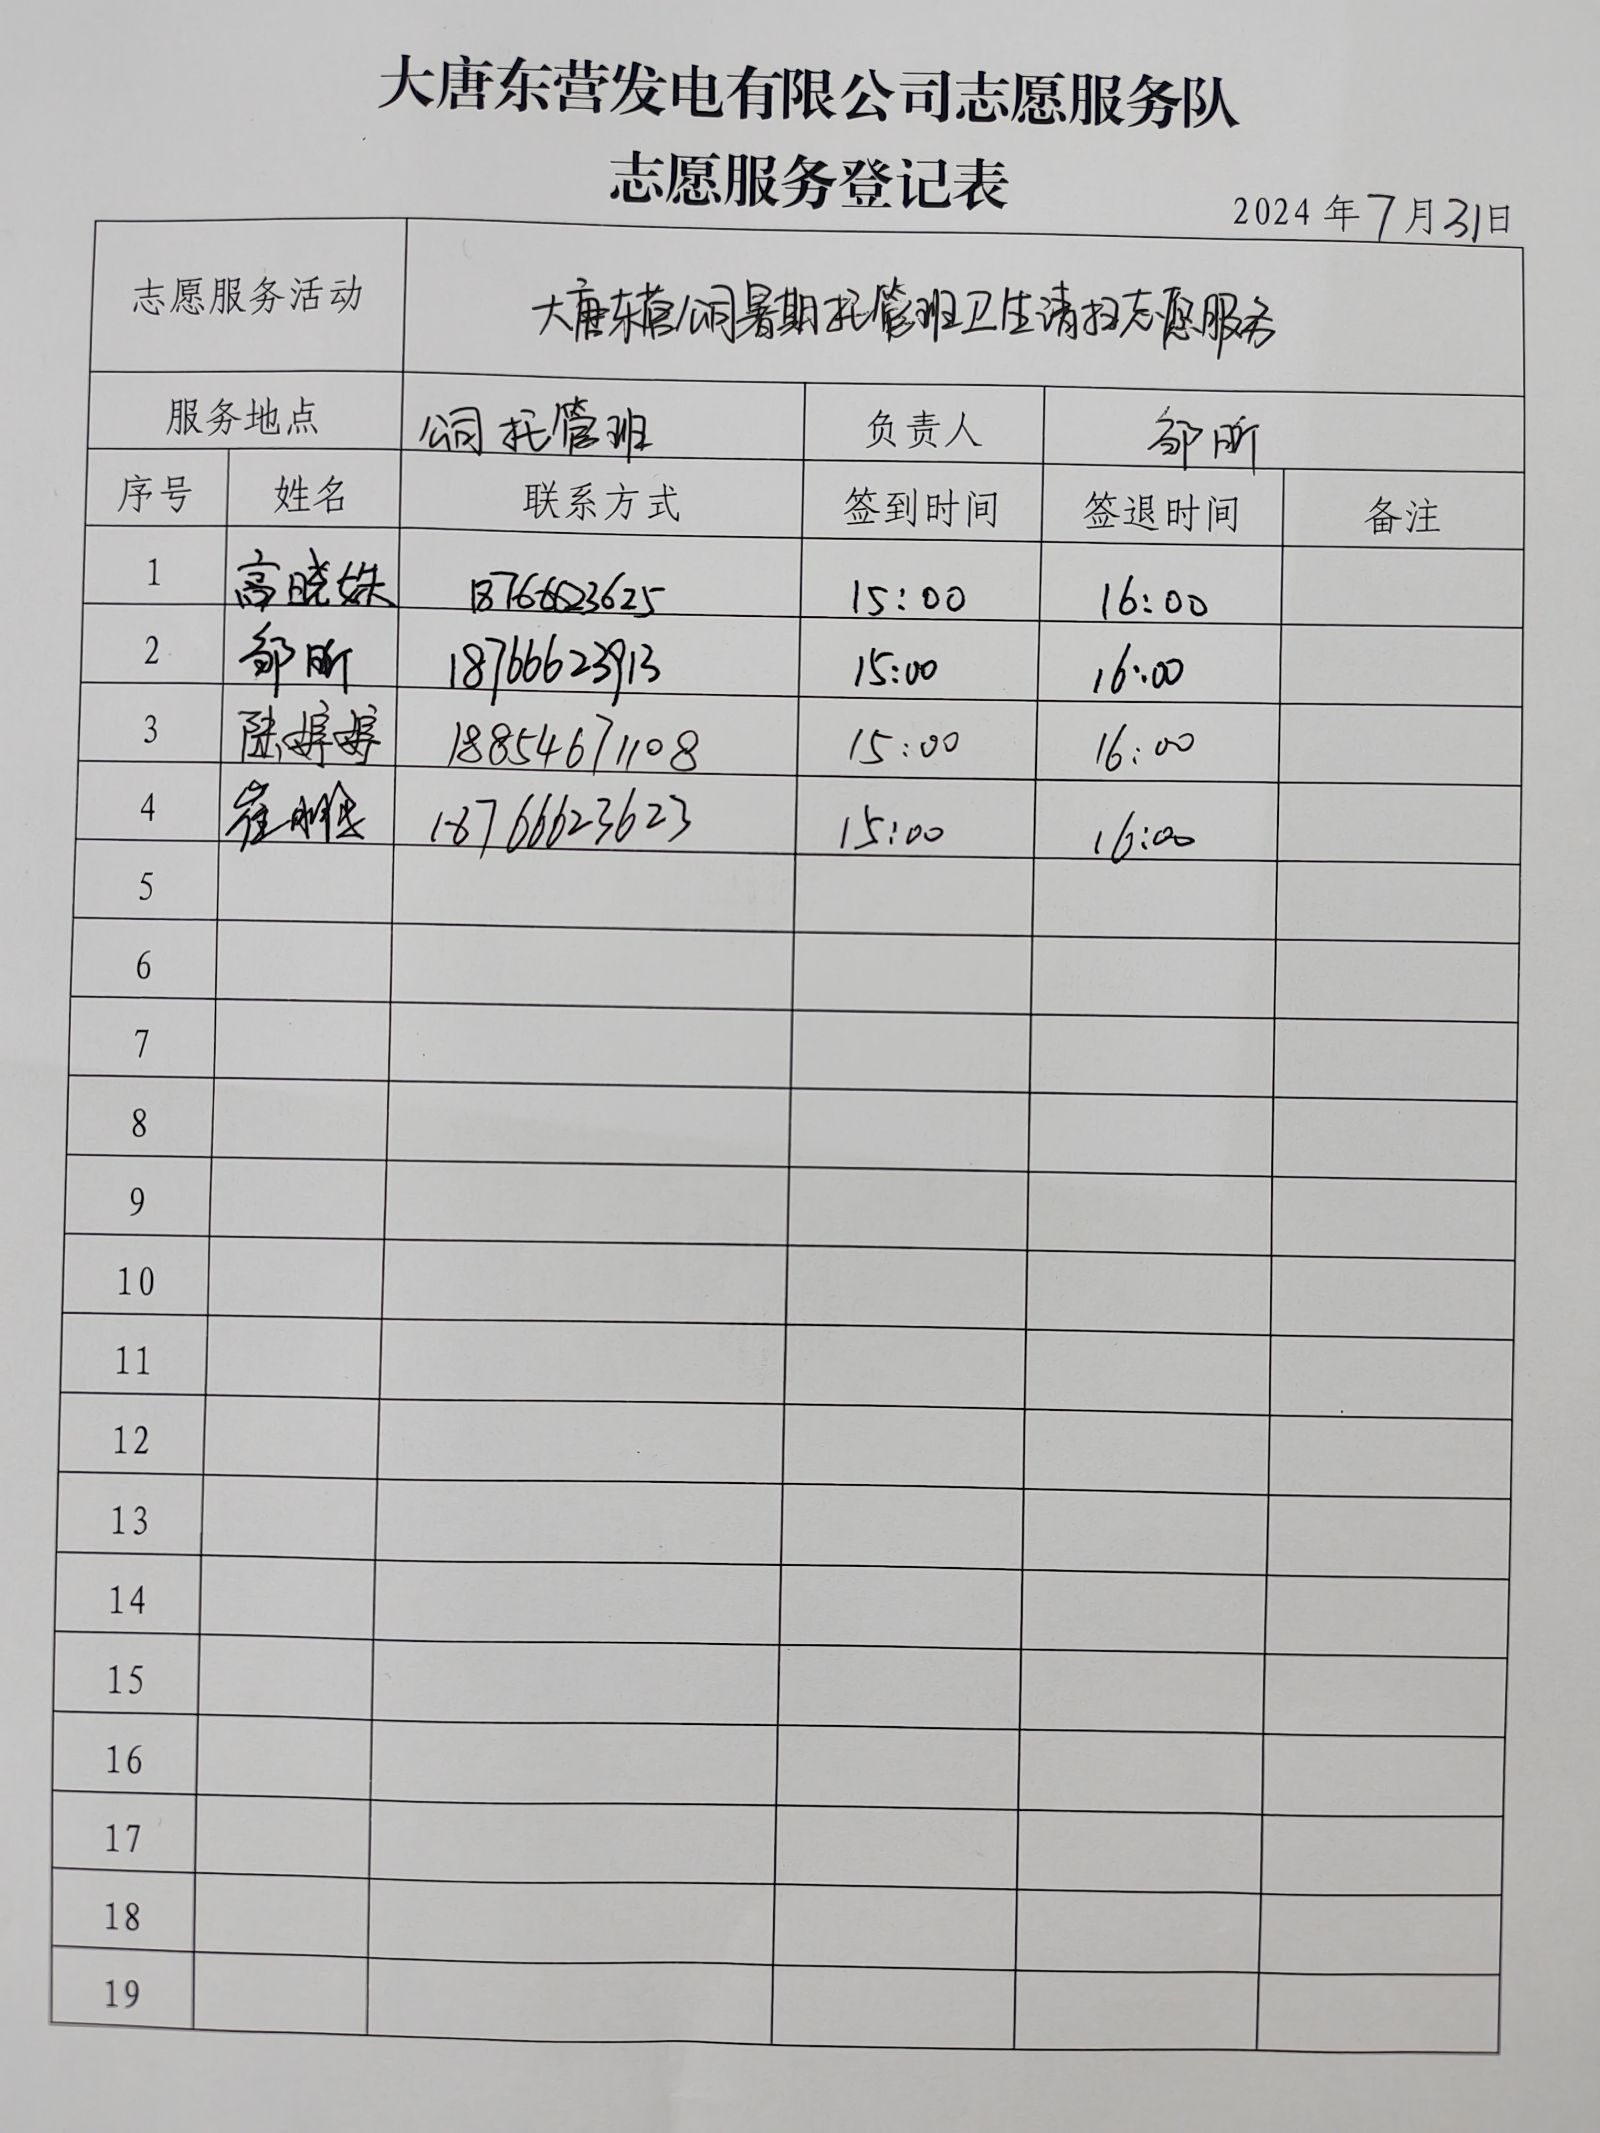 大唐东营发电有限公司志愿服务队
志愿服务登记表
2024年7月31日
志愿服务活动 大唐东营公司暑期托管班卫生清扫志愿服务
服务地点 公司托管班 负责人 邹昕
序号 姓名 联系方式 签到时间 签退时间 备注
1 高晓姝 18766623625 15:00 16:00
2 邹昕 18766623913 15:00 16:00
3 陆婷婷 18854671108 15:00 16:00
4 崔 18766623623 15:00 16:00
5
6
7
8
9
10
11
12
13
14
15
16
17
18
19